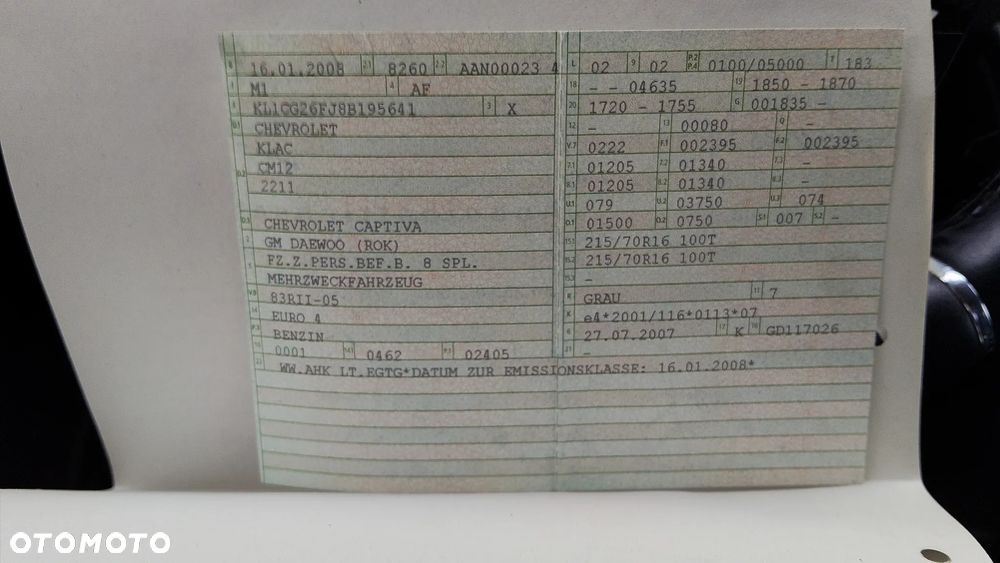 B 16.01.2008 2.1 8260 2.2 AAN00023 4 L 02 9 02 P.2 P.4 0100/05000 T 183
J M1 4 AF 18 - - 04635 19 1850 - 1870
E KL1CG26FJ8B195641 3 X 20 1720 - 1755 G 001835 -
D.1 CHEVROLET 12 - 13 00080 Q -
KLAC V.7 0222 F.1 002395 F.2 002395
D.2 CM12 7.1 01205 7.2 01340 7.3 -
2211 8.1 01205 8.2 01340 8.3 -
U.1 079 U.2 03750 U.3 074
D.3 CHEVROLET CAPTIVA O.1 01500 O.2 0750 S.1 007 S.2 -
2 GM DAEWOO (ROK) 15.1 215/70R16 100T
5 FZ.Z.PERS.BEF.B. 8 SPL. 15.2 215/70R16 100T
MEHRZWECKFAHRZEUG 15.3 -
V.9 83RII-05 R GRAU 11 7
14 EURO 4 K e4*2001/116*0113*07
P.3 BENZIN 6 27.07.2007 17 K 16 GD117026
10 0001 14.1 0462 P.1 02405 21 -
22 WW.AHK LT.EGTG*DATUM ZUR EMISSIONSKLASSE: 16.01.2008*
OTOMOTO